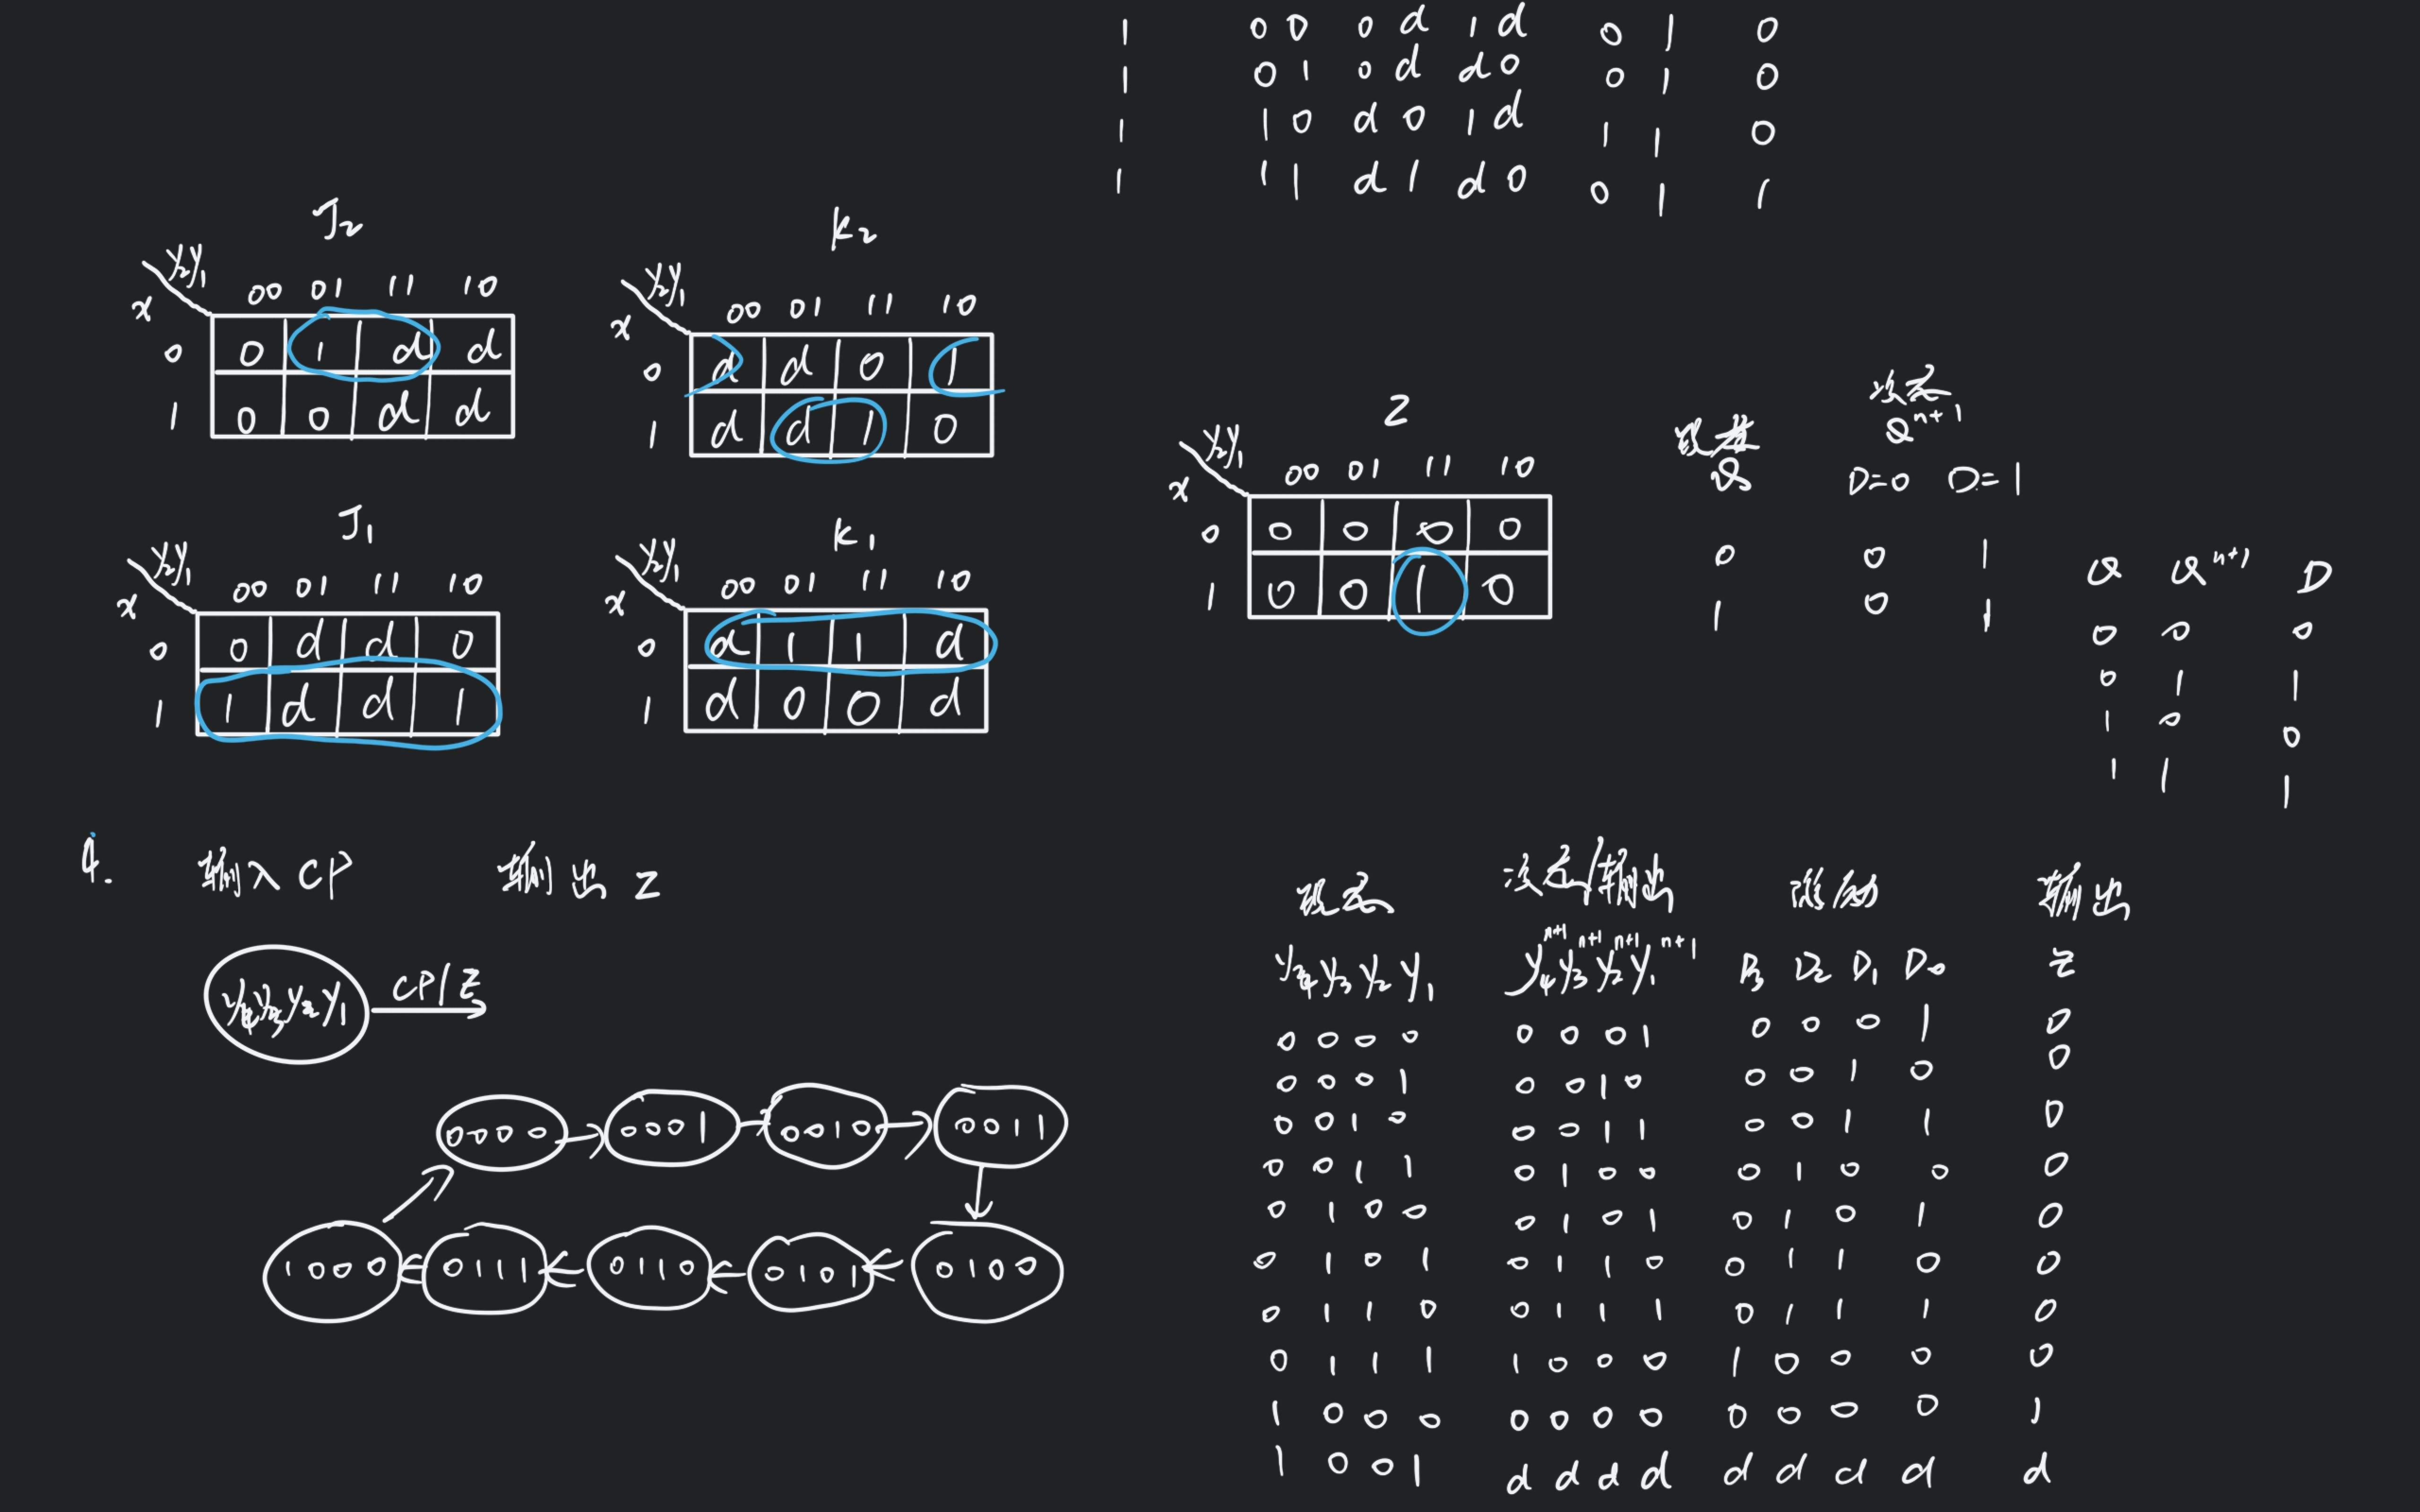 1 0 0 0 d 1 d 0 1 0
1 0 1 0 d d 0 0 1 0
1 1 0 d 0 1 d 1 1 0
1 1 1 d 1 d 0 0 1 1
J₂
x y₂y₁ 00 01 11 10
0 0 1 d d
1 0 0 d d
K₂
x y₂y₁ 00 01 11 10
0 d d 0 1
1 d d 1 0
J₁
x y₂y₁ 00 01 11 10
0 0 d d 0
1 1 d d 1
K₁
x y₂y₁ 00 01 11 10
0 d 1 1 d
1 d 0 0 d
Z
x y₂y₁ 00 01 11 10
0 0 0 0 0
1 0 0 1 0
现态 次态
Q Qⁿ⁺¹
D=0 D=1
0 0 1
1 0 1
Q Qⁿ⁺¹ D
0 0 0
0 1 1
1 0 0
1 1 1
4. 输入 CP 输出 Z
y₄y₃y₂y₁ CP/Z
0000 0001 0010 0011
1000 0111 0110 0101 0100
现态 次态/输出 激励 输出
y₄y₃y₂y₁ y₄ⁿ⁺¹y₃ⁿ⁺¹y₂ⁿ⁺¹y₁ⁿ⁺¹ D₃ D₂ D₁ D₀ Z
0 0 0 0 0 0 0 1 0 0 0 1 0
0 0 0 1 0 0 1 0 0 0 1 0 0
0 0 1 0 0 0 1 1 0 0 1 1 0
0 0 1 1 0 1 0 0 0 1 0 0 0
0 1 0 0 0 1 0 1 0 1 0 1 0
0 1 0 1 0 1 1 0 0 1 1 0 0
0 1 1 0 0 1 1 1 0 1 1 1 0
0 1 1 1 1 0 0 0 1 0 0 0 0
1 0 0 0 0 0 0 0 0 0 0 0 1
1 0 0 1 d d d d d d d d d